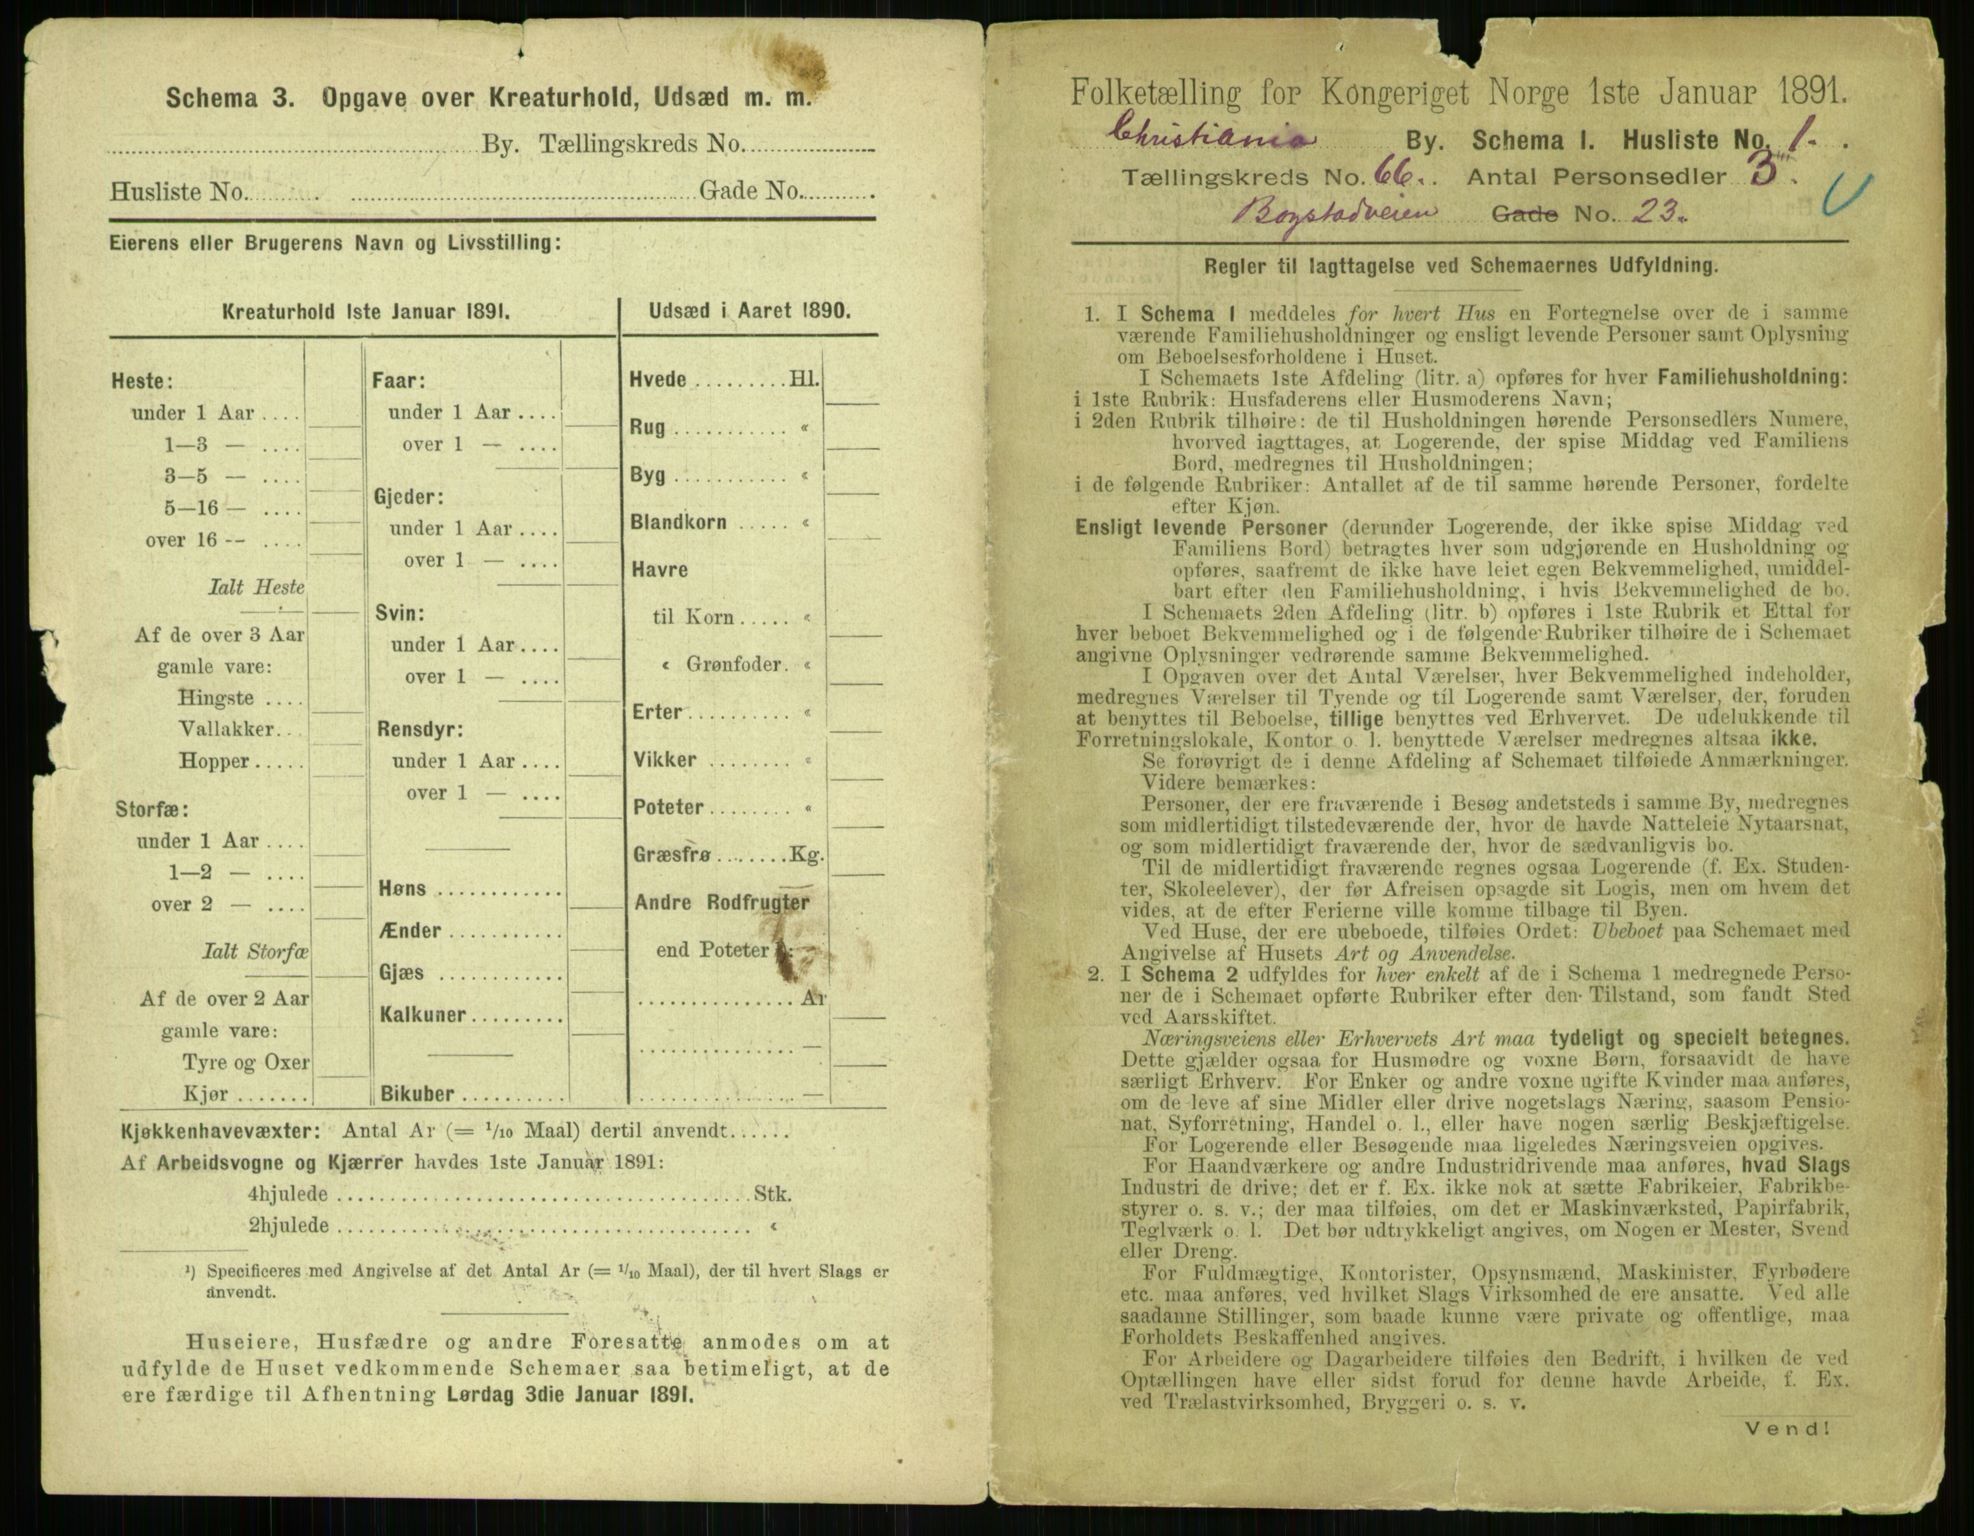 Schema 3. Opgave over Kreaturhold, Udsæd m. m.
By. Tællingskreds No.
Husliste No. Gade No.
Eierens eller Brugerens Navn og Livsstilling:
Kreaturhold 1ste Januar 1891.
Heste:
under 1 Aar ....
1—3 — ....
3—5 — ....
5—16 — ....
over 16 -- ....
Ialt Heste
Af de over 3 Aar
gamle vare:
Hingste ....
Vallakker..
Hopper .....
Storfæ:
under 1 Aar ....
1—2 — ....
over 2 — ....
Ialt Storfæ
Af de over 2 Aar
gamle vare:
Tyre og Oxer
Kjør .......
Faar:
under 1 Aar ....
over 1 — ....
Gjeder:
under 1 Aar ....
over 1 — ....
Svin:
under 1 Aar ....
over 1 — ....
Rensdyr:
under 1 Aar ....
over 1 — ....
Høns ............
Ænder ...........
Gjæs ............
Kalkuner .........
Bikuber ..........
Udsæd i Aaret 1890.
Hvede .........Hl.
Rug ........... «
Byg ........... «
Blandkorn ..... «
Havre
til Korn ..... «
« Grønfoder. «
Erter .......... «
Vikker ........ «
Poteter ........ «
Græsfrø .......Kg.
Andre Rodfrugter
end Poteter ¹):
............... Ar
............... —
............... —
Kjøkkenhavevæxter: Antal Ar (= 1/10 Maal) dertil anvendt......
Af Arbeidsvogne og Kjærrer havdes 1ste Januar 1891:
4hjulede ........................................ Stk.
2hjulede ........................................ «
¹) Specificeres med Angivelse af det Antal Ar (= 1/10 Maal), der til hvert Slags er
anvendt.
Huseiere, Husfædre og andre Foresatte anmodes om at
udfylde de Huset vedkommende Schemaer saa betimeligt, at de
ere færdige til Afhentning Lørdag 3die Januar 1891.
Folketælling for Kongeriget Norge 1ste Januar 1891.
Christiania By. Schema I. Husliste No. 1.
Tællingskreds No. 66. Antal Personsedler 3.
Bogstadveien Gade No. 23.
Regler til Iagttagelse ved Schemaernes Udfyldning.
1. I Schema I meddeles for hvert Hus en Fortegnelse over de i samme
værende Familiehusholdninger og ensligt levende Personer samt Oplysning
om Beboelsesforholdene i Huset.
I Schemaets 1ste Afdeling (litr. a) opføres for hver Familiehusholdning:
i 1ste Rubrik: Husfaderens eller Husmoderens Navn;
i 2den Rubrik tilhøire: de til Husholdningen hørende Personsedlers Numere,
hvorved iagttages, at Logerende, der spise Middag ved Familiens
Bord, medregnes til Husholdningen;
i de følgende Rubriker: Antallet af de til samme hørende Personer, fordelte
efter Kjøn.
Ensligt levende Personer (derunder Logerende, der ikke spise Middag ved
Familiens Bord) betragtes hver som udgjørende en Husholdning og
opføres, saafremt de ikke have leiet egen Bekvemmelighed, umiddel-
bart efter den Familiehusholdning, i hvis Bekvemmelighed de bo.
I Schemaets 2den Afdeling (litr. b) opføres i 1ste Rubrik et Ettal for
hver beboet Bekvemmelighed og i de følgende Rubriker tilhøire de i Schemaet
angivne Oplysninger vedrørende samme Bekvemmelighed.
I Opgaven over det Antal Værelser, hver Bekvemmelighed indeholder,
medregnes Værelser til Tyende og til Logerende samt Værelser, der, foruden
at benyttes til Beboelse, tillige benyttes ved Erhvervet. De udelukkende til
Forretningslokale, Kontor o. l. benyttede Værelser medregnes altsaa ikke.
Se forøvrigt de i denne Afdeling af Schemaet tilføiede Anmærkninger.
Videre bemærkes:
Personer, der ere fraværende i Besøg andetsteds i samme By, medregnes
som midlertidigt tilstedeværende der, hvor de havde Natteleie Nytaarsnat,
og som midlertidigt fraværende der, hvor de sædvanligvis bo.
Til de midlertidigt fraværende regnes ogsaa Logerende (f. Ex. Studen-
ter, Skoleelever), der før Afreisen opsagde sit Logis, men om hvem det
vides, at de efter Ferierne ville komme tilbage til Byen.
Ved Huse, der ere ubeboede, tilføies Ordet: Ubeboet paa Schemaet med
Angivelse af Husets Art og Anvendelse.
2. I Schema 2 udfyldes for hver enkelt af de i Schema 1 medregnede Perso-
ner de i Schemaet opførte Rubriker efter den Tilstand, som fandt Sted
ved Aarsskiftet.
Næringsveiens eller Erhvervets Art maa tydeligt og specielt betegnes.
Dette gjælder ogsaa for Husmødre og voxne Børn, forsaavidt de have
særligt Erhverv. For Enker og andre voxne ugifte Kvinder maa anføres,
om de leve af sine Midler eller drive nogetslags Næring, saasom Pensio-
nat, Syforretning, Handel o. l., eller have nogen særlig Beskjæftigelse.
For Logerende eller Besøgende maa ligeledes Næringsveien opgives.
For Haandværkere og andre Industridrivende maa anføres, hvad Slags
Industri de drive; det er f. Ex. ikke nok at sætte Fabrikeier, Fabrikbe-
styrer o. s. v.; der maa tilføies, om det er Maskinværksted, Papirfabrik,
Teglværk o. l. Det bør udtrykkeligt angives, om Nogen er Mester, Svend
eller Dreng.
For Fuldmægtige, Kontorister, Opsynsmænd, Maskinister, Fyrbødere
etc. maa anføres, ved hvilket Slags Virksomhed de ere ansatte. Ved alle
saadanne Stillinger, som baade kunne være private og offentlige, maa
Forholdets Beskaffenhed angives.
For Arbeidere og Dagarbeidere tilføies den Bedrift, i hvilken de ved
Optællingen have eller sidst forud for denne havde Arbeide, f. Ex.
ved Trælastvirksomhed, Bryggeri o. s. v.
Vend!